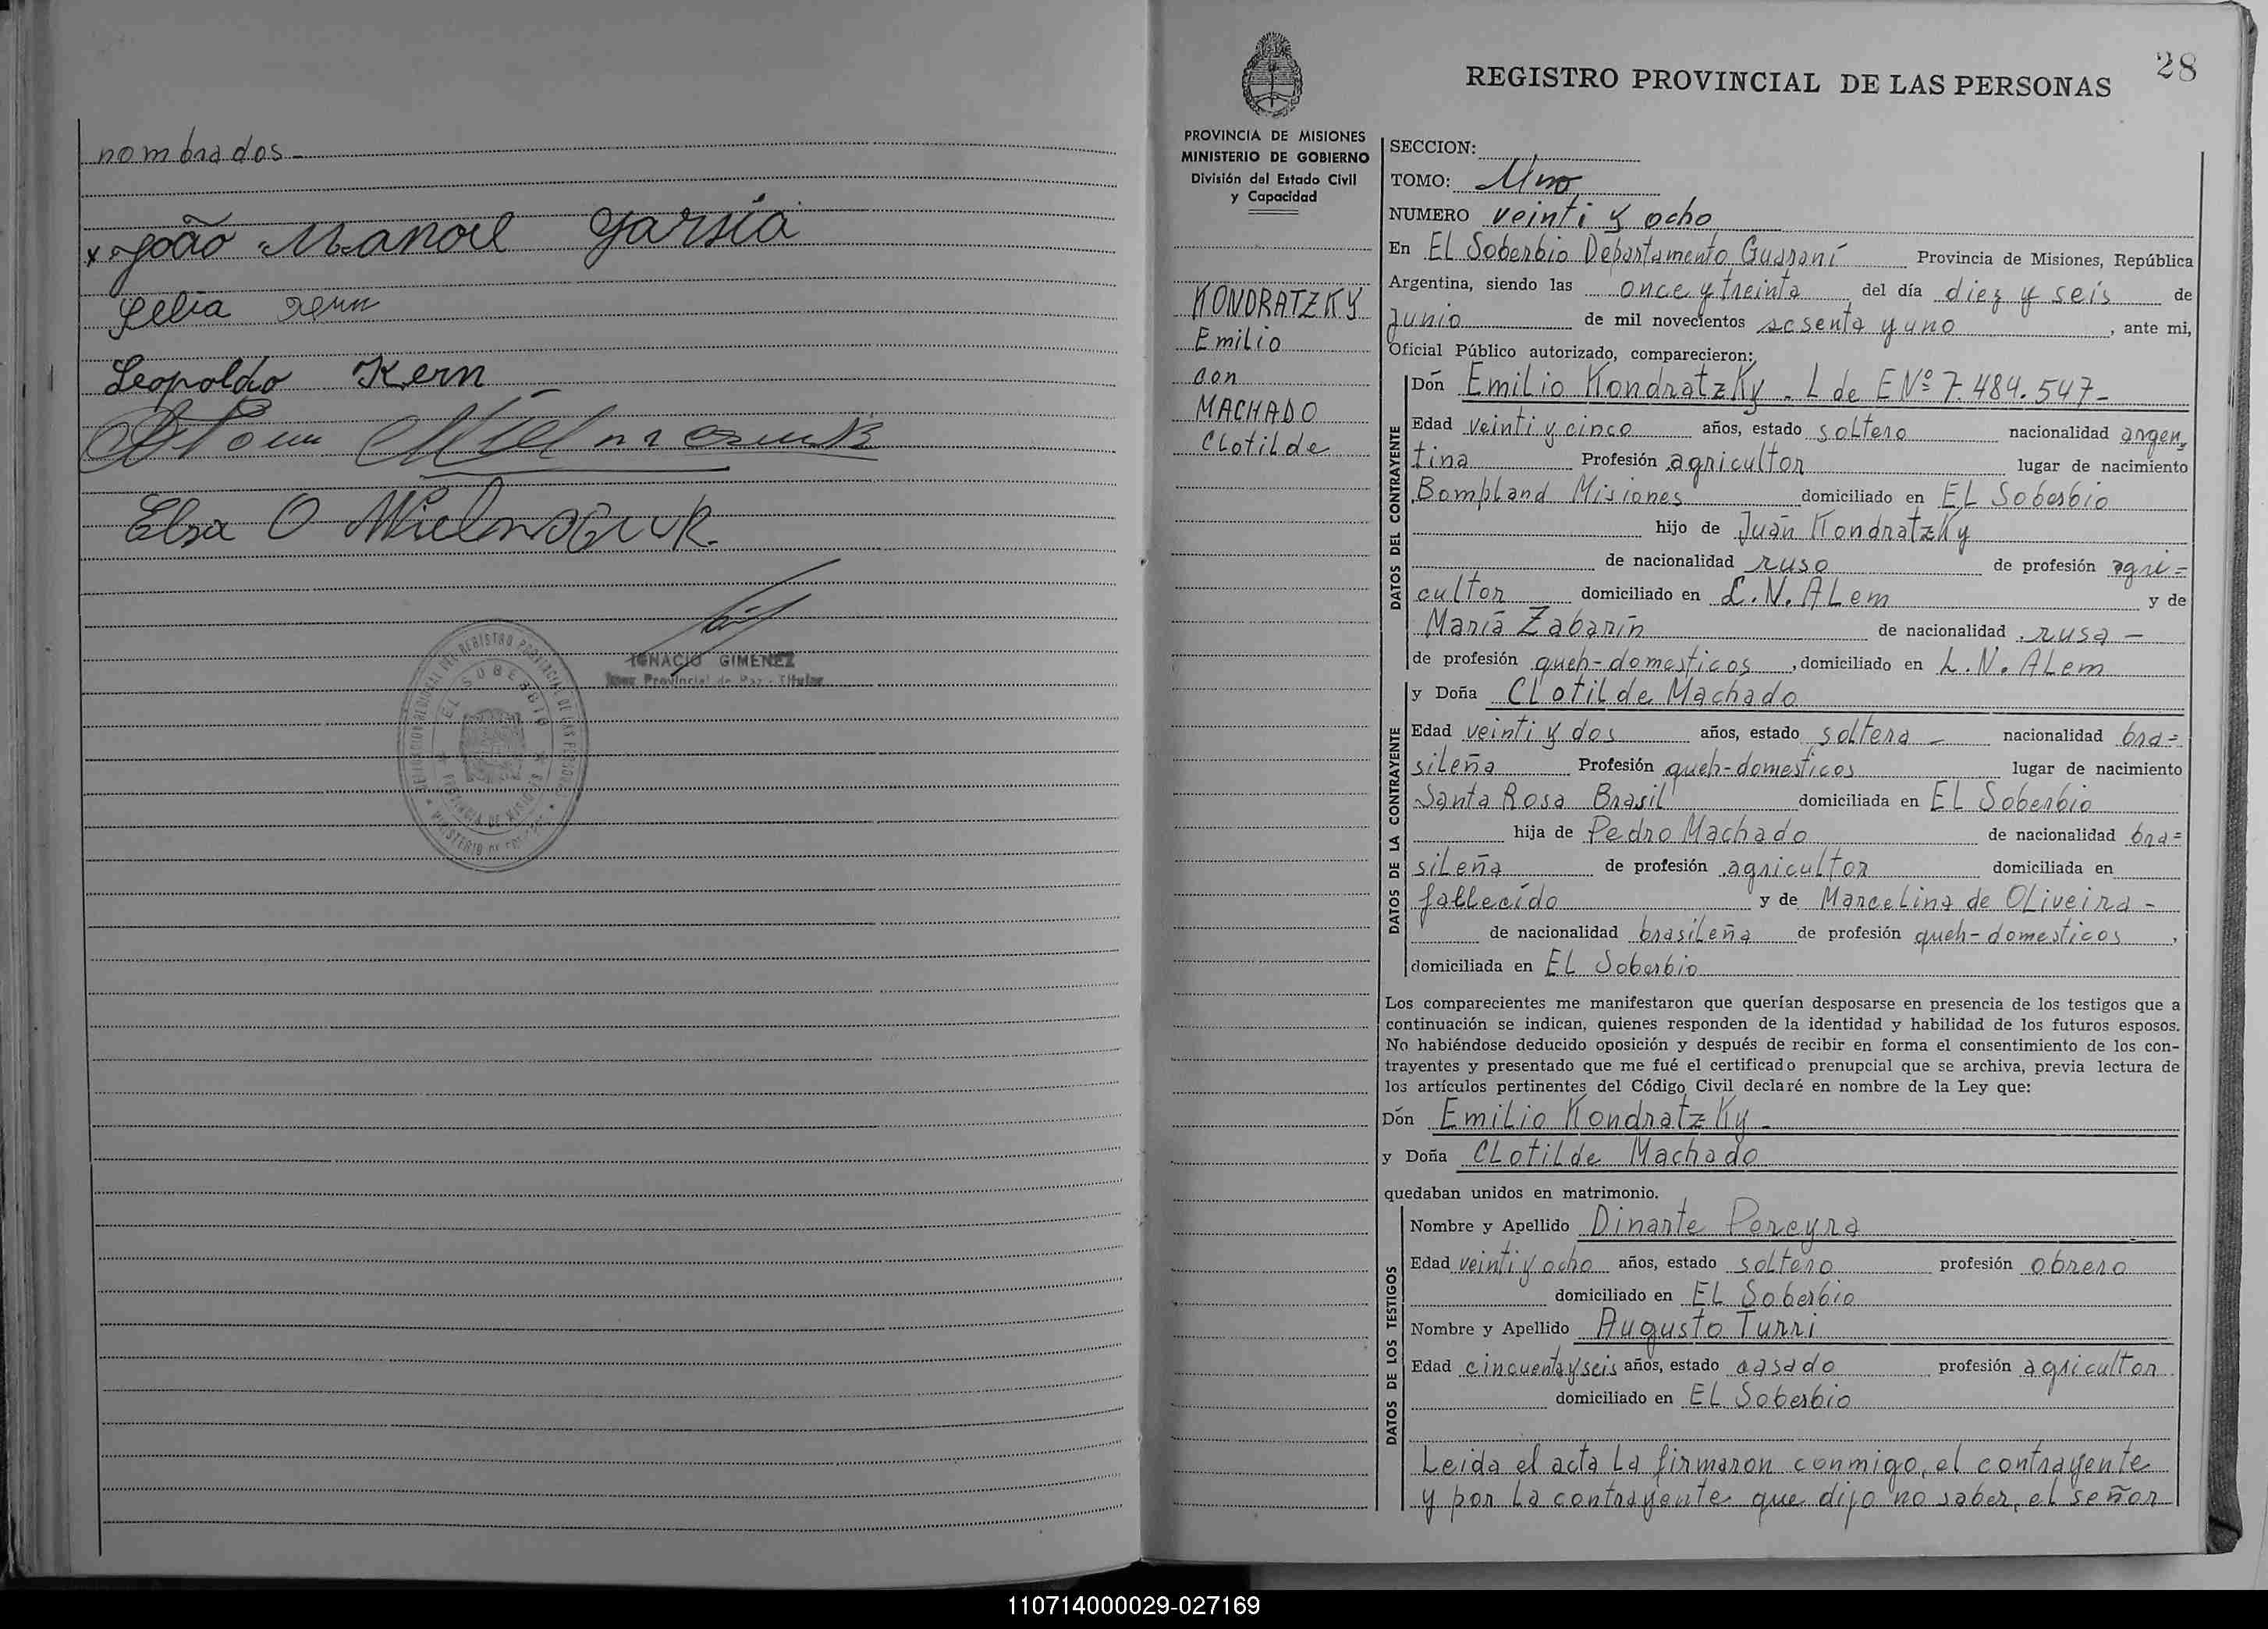 nombrados-
x João Manoel Garsia
Celia Kern
Leopoldo Kern
Elsa O Mielniczuk.
IGNACIO GIMENEZ
Juez Provincial de Paz - Titular
EL SOBERBIO
PROVINCIA DE MISIONES
28
REGISTRO PROVINCIAL DE LAS PERSONAS
PROVINCIA DE MISIONES
MINISTERIO DE GOBIERNO
División del Estado Civil
y Capacidad
KONDRATZKY
Emilio
con
MACHADO
Clotilde
SECCION:
TOMO: Uno
NUMERO veinti y ocho
En El Soberbio Departamento Guaraní Provincia de Misiones, República
Argentina, siendo las once y treinta del día diez y seis de
Junio de mil novecientos sesenta y uno, ante mi,
Oficial Público autorizado, comparecieron:
DATOS DEL CONTRAYENTE
Dón Emilio Kondratzky - L de E Nº 7.484.547-
Edad veinti y cinco años, estado soltero nacionalidad argen=
tina Profesión agricultor lugar de nacimiento
Bompland Misiones domiciliado en El Soberbio
hijo de Juan Kondratzky
de nacionalidad ruso de profesión agri=
cultor domiciliado en L.N.ALem y de
María Zabarín de nacionalidad rusa -
de profesión queh-domesticos, domiciliado en L.N.ALem
DATOS DE LA CONTRAYENTE
y Doña Clotilde Machado
Edad veinti y dos años, estado soltera - nacionalidad bra=
sileña Profesión queh-domesticos lugar de nacimiento
Santa Rosa Brasil domiciliada en El Soberbio
hija de Pedro Machado de nacionalidad bra=
sileña de profesión agricultor domiciliada en
fallecído y de Marcelina de Oliveira -
de nacionalidad brasileña de profesión queh-domesticos,
domiciliada en El Soberbio
Los comparecientes me manifestaron que querían desposarse en presencia de los testigos que a
continuación se indican, quienes responden de la identidad y habilidad de los futuros esposos.
No habiéndose deducido oposición y después de recibir en forma el consentimiento de los con-
trayentes y presentado que me fué el certificado prenupcial que se archiva, previa lectura de
los artículos pertinentes del Código Civil declaré en nombre de la Ley que:
Dón Emilio Kondratzky -
y Doña Clotilde Machado
quedaban unidos en matrimonio.
DATOS DE LOS TESTIGOS
Nombre y Apellido Dinarte Pereyra
Edad veinti y ocho años, estado soltero profesión obrero
domiciliado en El Soberbio
Nombre y Apellido Augusto Turri
Edad cincuenta y seis años, estado casado profesión agricultor
domiciliado en El Soberbio
Leida el acta la firmaron conmigo, el contrayente
y por la contrayente que dijo no saber, el señor
110714000029-027169